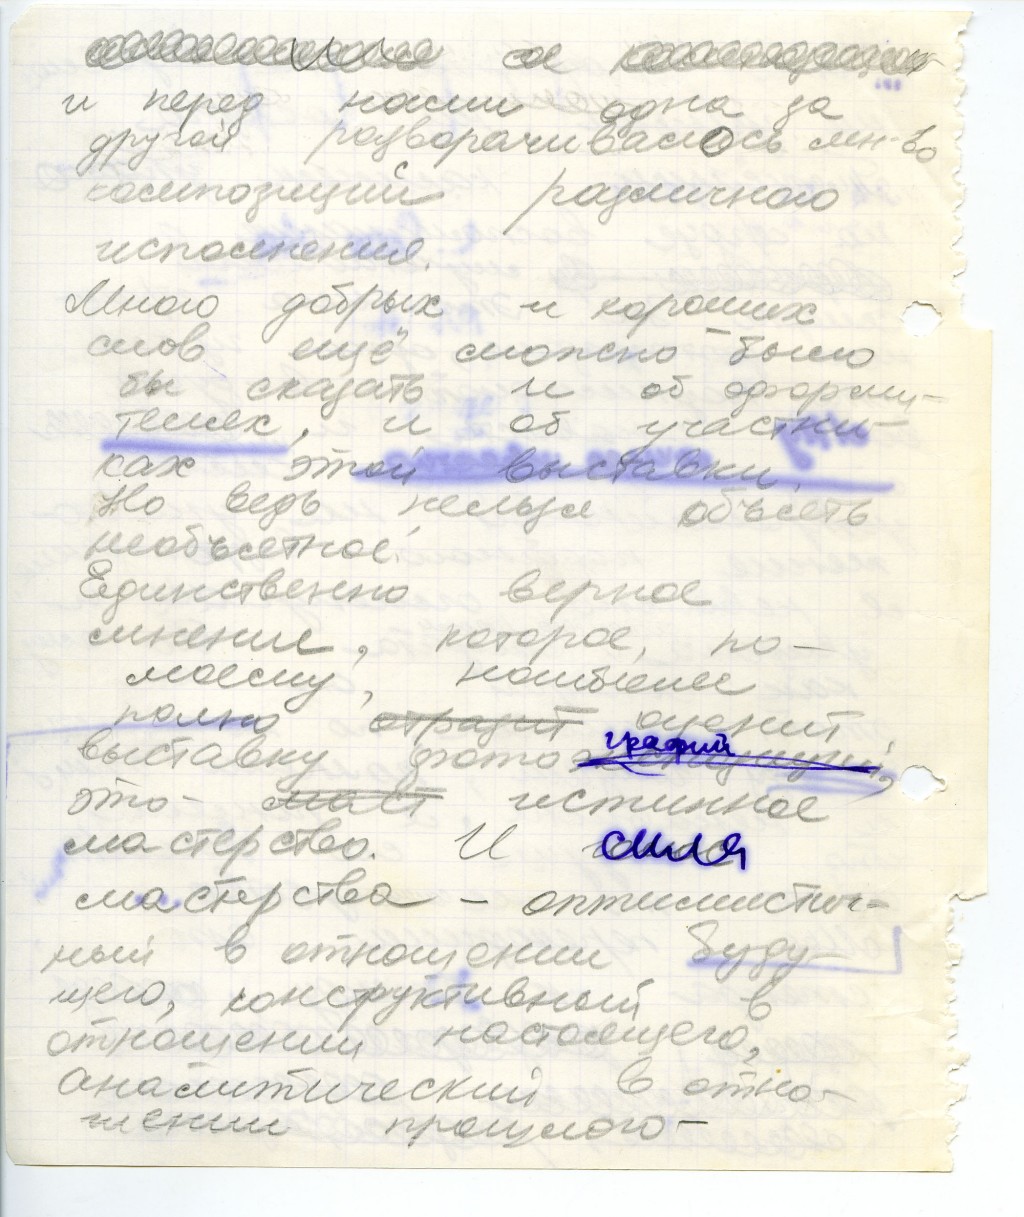 ее
и перед нами одна за
другой разворачивалось мн-во
композиций различного
исполнения.
Много добрых и хороших
слов ещё можно было
бы сказать и об оформи-
телях, и об участни-
ках этой выставки.
Но ведь нельзя объять
необъятное!
Единственно верное
мнение, которое, по-
моему, наиболее
полно отразит оценит
выставку фотографий,
это - маст истинное
мастерство. И сила
мастерства - оптимистич-
ный в отношении буду-
щего, конструктивный в
отношении настоящего,
аналитический в отно-
шении прошлого -